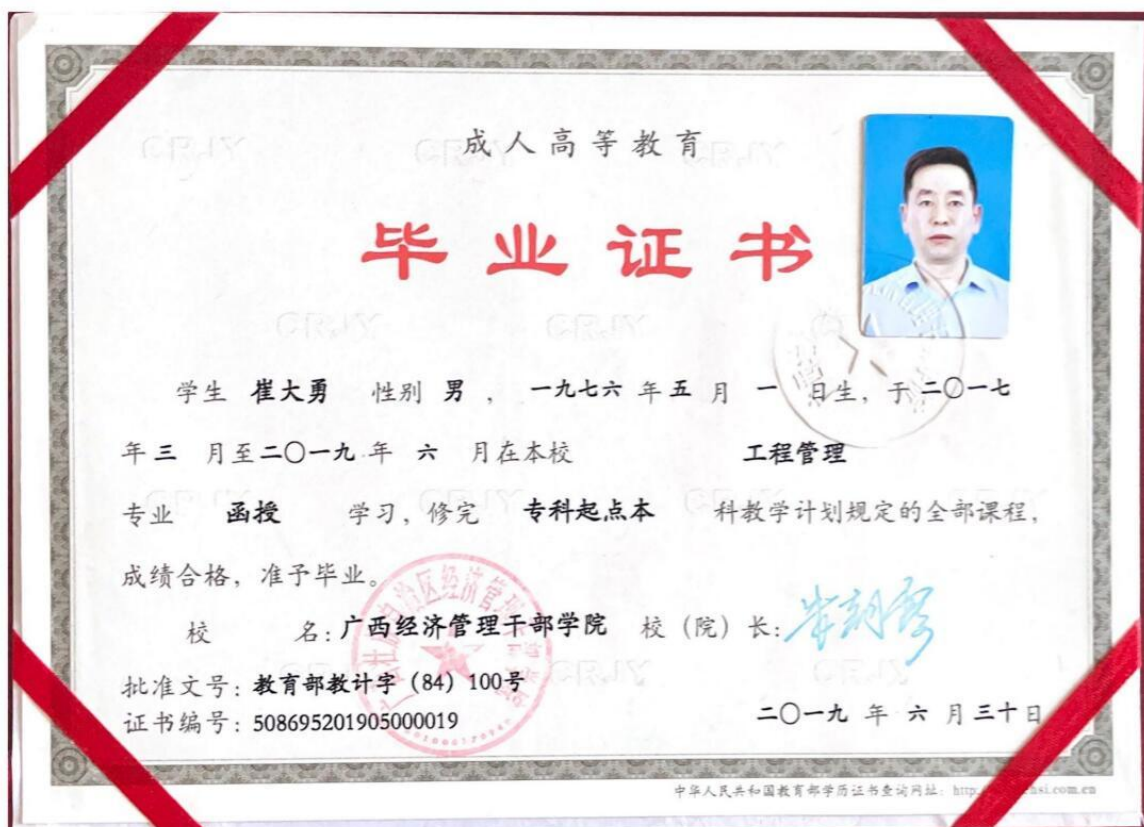 成人高等教育
毕业证书
学生 崔大勇 性别 男 ，一九七六 年 五 月 一 日生，于 二〇一七
年 三 月至 二〇一九 年 六 月在本校 工程管理
专业 函授 学习，修完 专科起点本 科教学计划规定的全部课程，
成绩合格，准予毕业。
校 名：广西经济管理干部学院 校（院）长：
批准文号：教育部教计字（84）100号
证书编号：508695201905000019
二〇一九 年 六 月 三十 日
中华人民共和国教育部学历证书查询网址：http:
hsi.com.cn
CRJY
CRJY
CRJY
CRJY
CRJY
CRJY
CRJY
CRJY
CRJY
CRJY